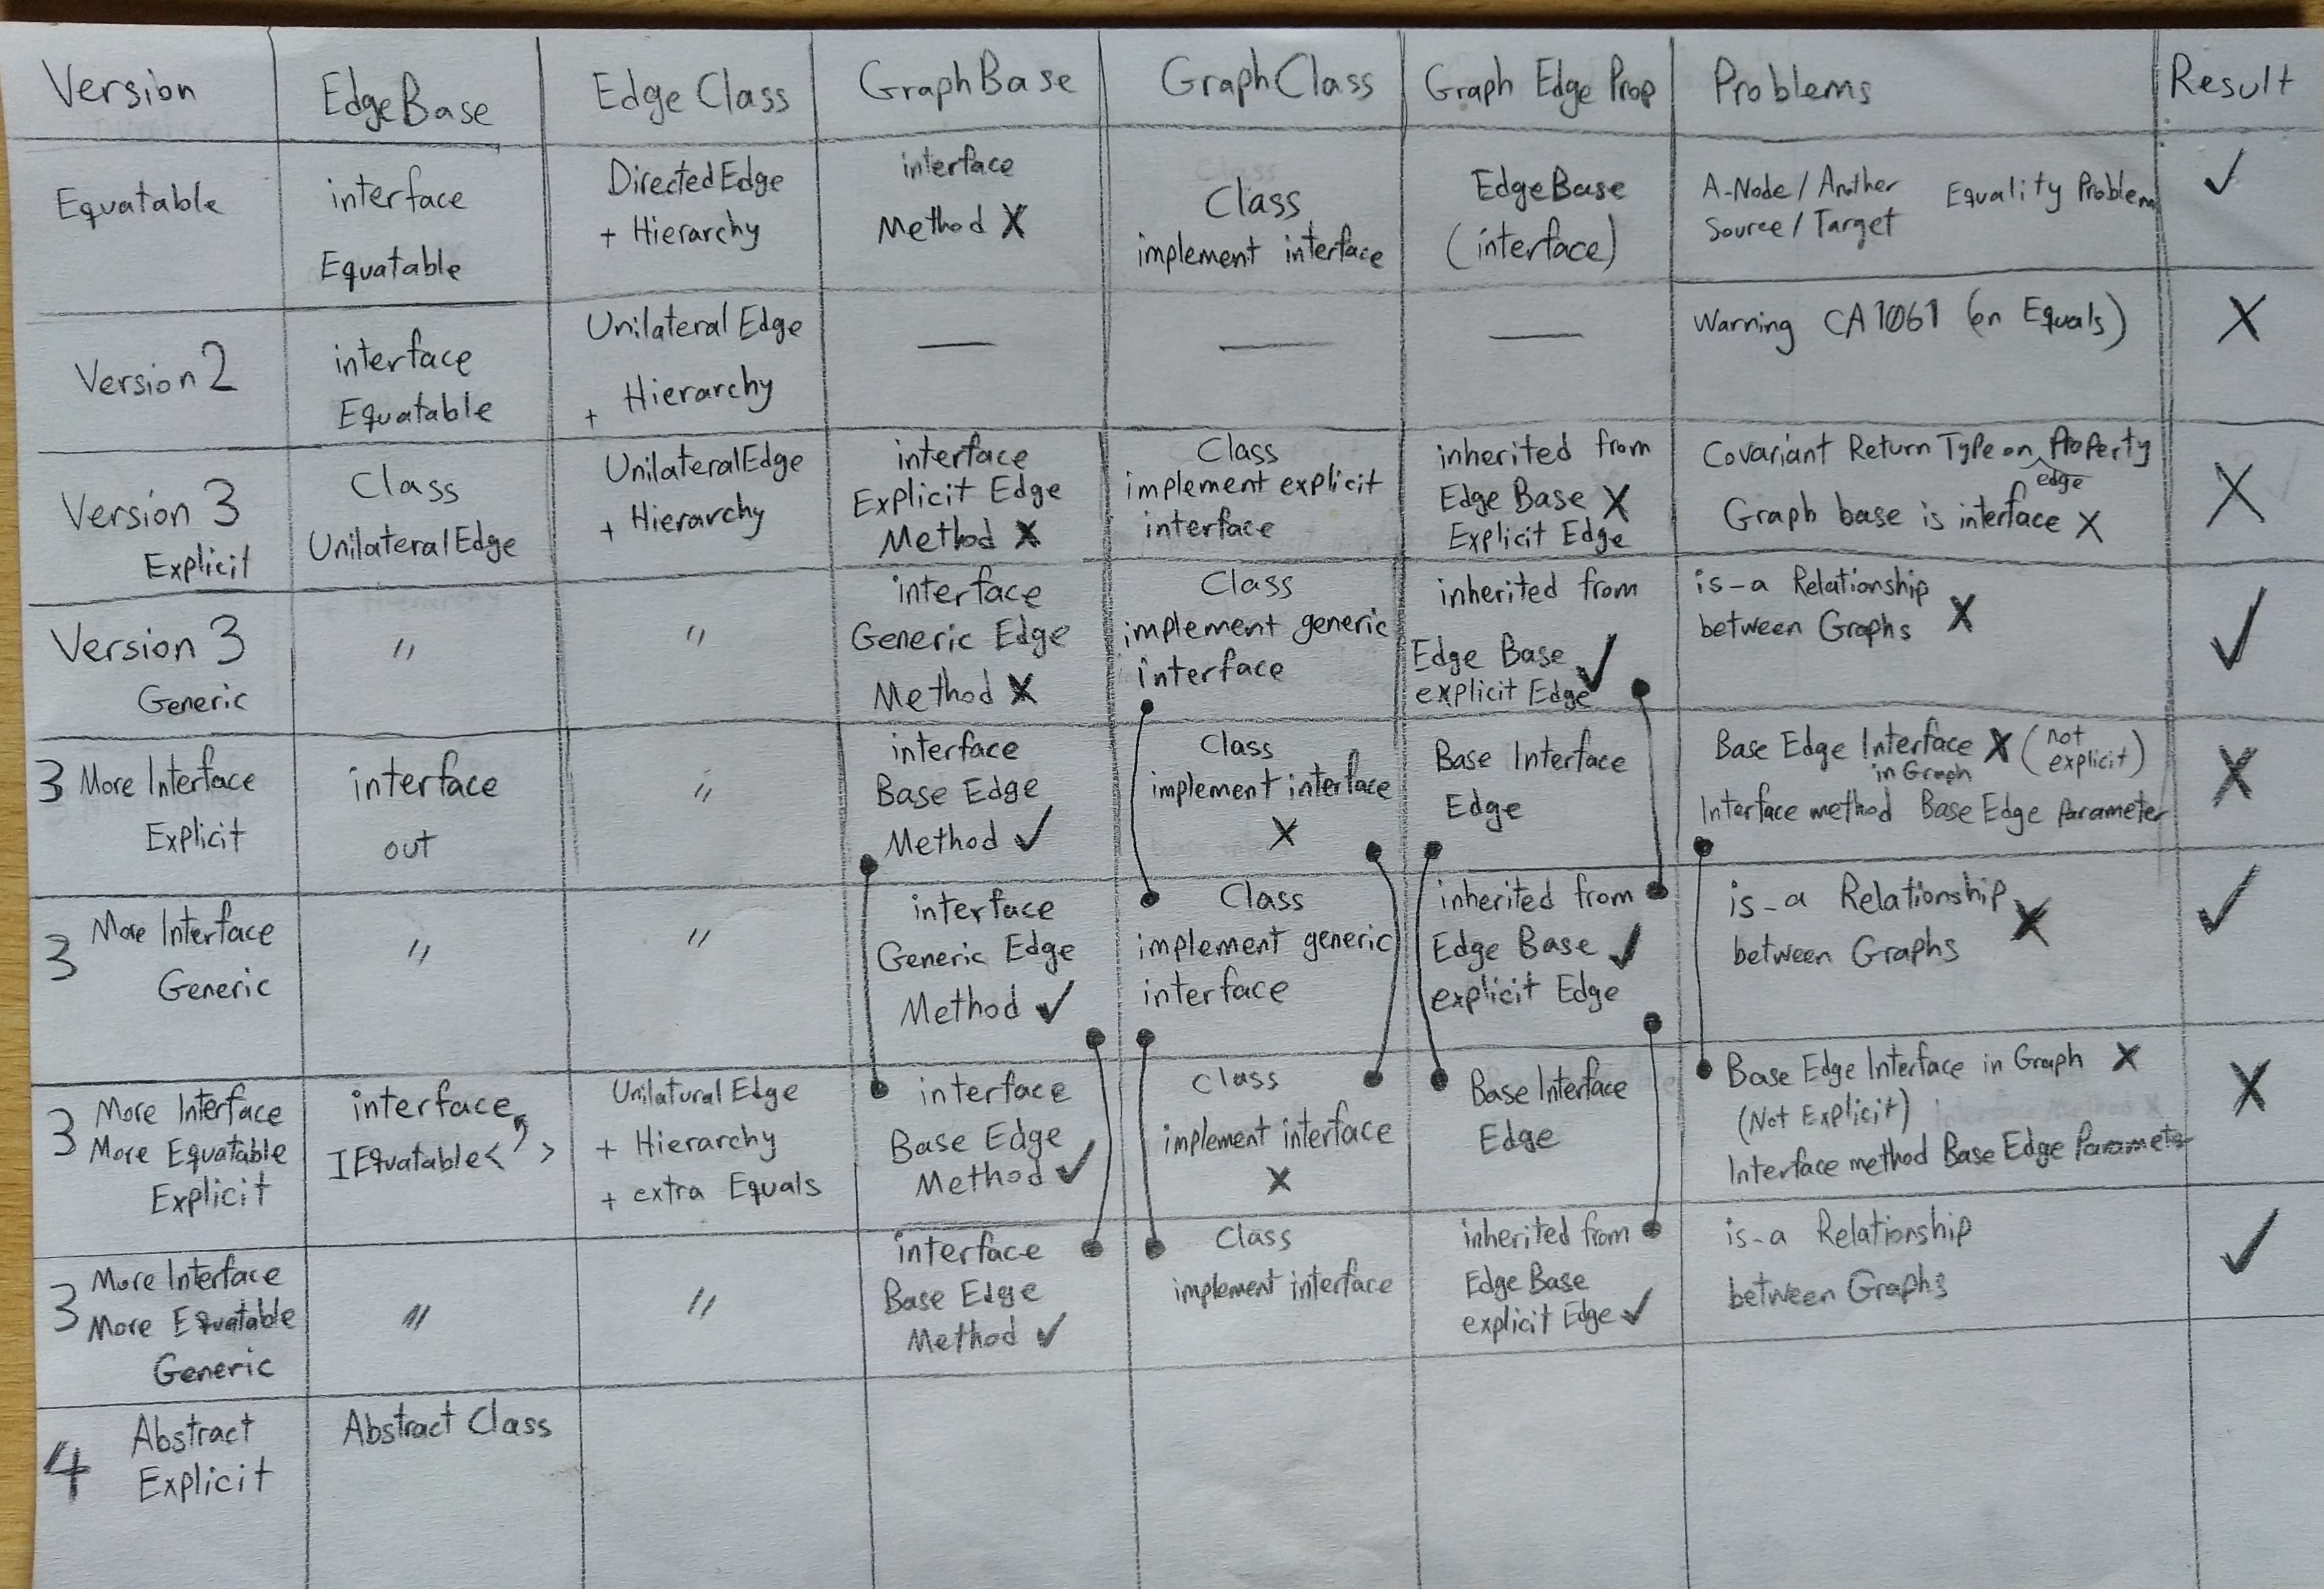 Version
EdgeBase
Edge Class
GraphBase
GraphClass
Graph Edge Prop
Problems
Result
Equatable
interface
Equatable
DirectedEdge
+ Hierarchy
interface
Method X
Class
implement interface
EdgeBase
(interface)
A-Node / Another Equality Problem
Source / Target
✓
Version 2
interface
Equatable
Unilateral Edge
+ Hierarchy
—
—
—
Warning CA1061 (on Equals)
X
Version 3
Explicit
Class
UnilateralEdge
UnilateralEdge
+ Hierarchy
interface
Explicit Edge
Method X
Class
implement explicit
interface
inherited from
Edge Base X
Explicit Edge
Covariant Return Type on Property
edge
Graph base is interface X
X
Version 3
Generic
"
"
interface
Generic Edge
Method X
Class
implement generic
interface
inherited from
Edge Base ✓
explicit Edge
is-a Relationship X
between Graphs
✓
3 More Interface
Explicit
interface
out
"
interface
Base Edge
Method ✓
Class
implement interface
X
Base Interface
Edge
Base Edge Interface X (not explicit)
in Graph
Interface method Base Edge Parameter
X
3 More Interface
Generic
"
"
interface
Generic Edge
Method ✓
Class
implement generic
interface
inherited from
Edge Base ✓
explicit Edge
is-a Relationship X
between Graphs
✓
3 More Interface
More Equatable
Explicit
interface
IEquatable< >
Unilatural Edge
+ Hierarchy
+ extra Equals
interface
Base Edge
Method ✓
Class
implement interface
X
Base Interface
Edge
Base Edge Interface in Graph X
(Not Explicit)
Interface method Base Edge Parameter
X
3 More Interface
More Equatable
Generic
"
"
interface
Base Edge
Method ✓
Class
implement interface
inherited from
Edge Base
explicit Edge ✓
is-a Relationship
between Graphs
✓
4 Abstract
Explicit
Abstract Class